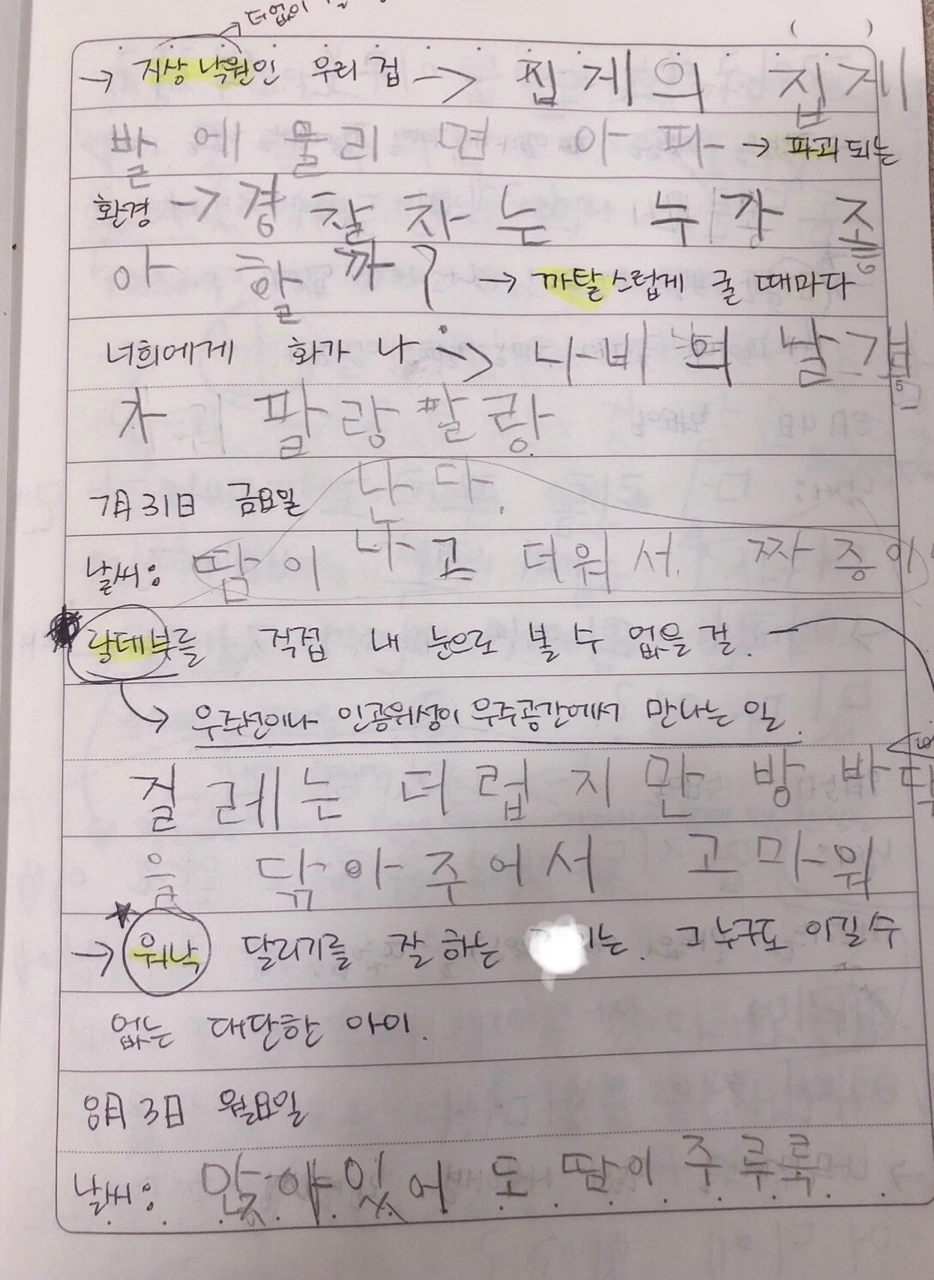 더없이
( )
→ 지상 낙원인 우리 집 → 집게의 집게
발에 물리면 아파 → 파괴되는
환경 → 경찰차는 누가 조
아할까? → 까탈스럽게 굴 때마다
너희에게 화가 나 → 나비의 날개
가 팔랑팔랑
난다.
7月 31日 금요일
날씨: 땀이 나고 더워서. 짜증이
랑데부를 직접 내 눈으로 볼 수 없을 걸.
→ 우주선이나 인공위성이 우주공간에서 만나는 일.
걸레는 더럽지만 방바닥
을 닦아주어서 고마워
→ 워낙 달리기를 잘 하는 는. 그 누구도 이길 수
없는 대단한 아이.
8月 3日 월요일
날씨: 앉아있어도 땀이 주루룩